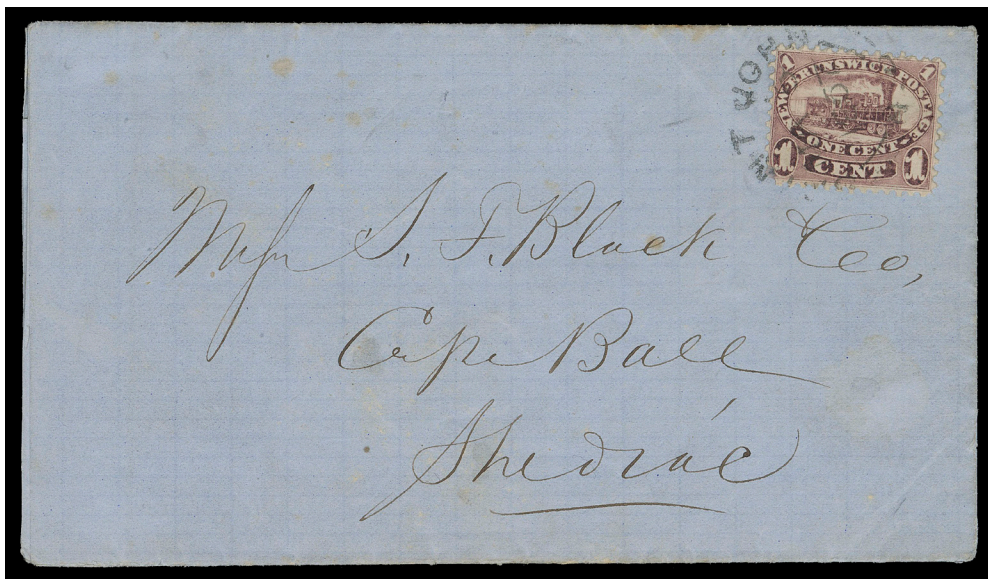 1 1
NEW-BRUNSWICK POSTAGE
ONE CENT
1 CENT 1
Messrs S. F. Black Co,
Cape Ball
Shediac